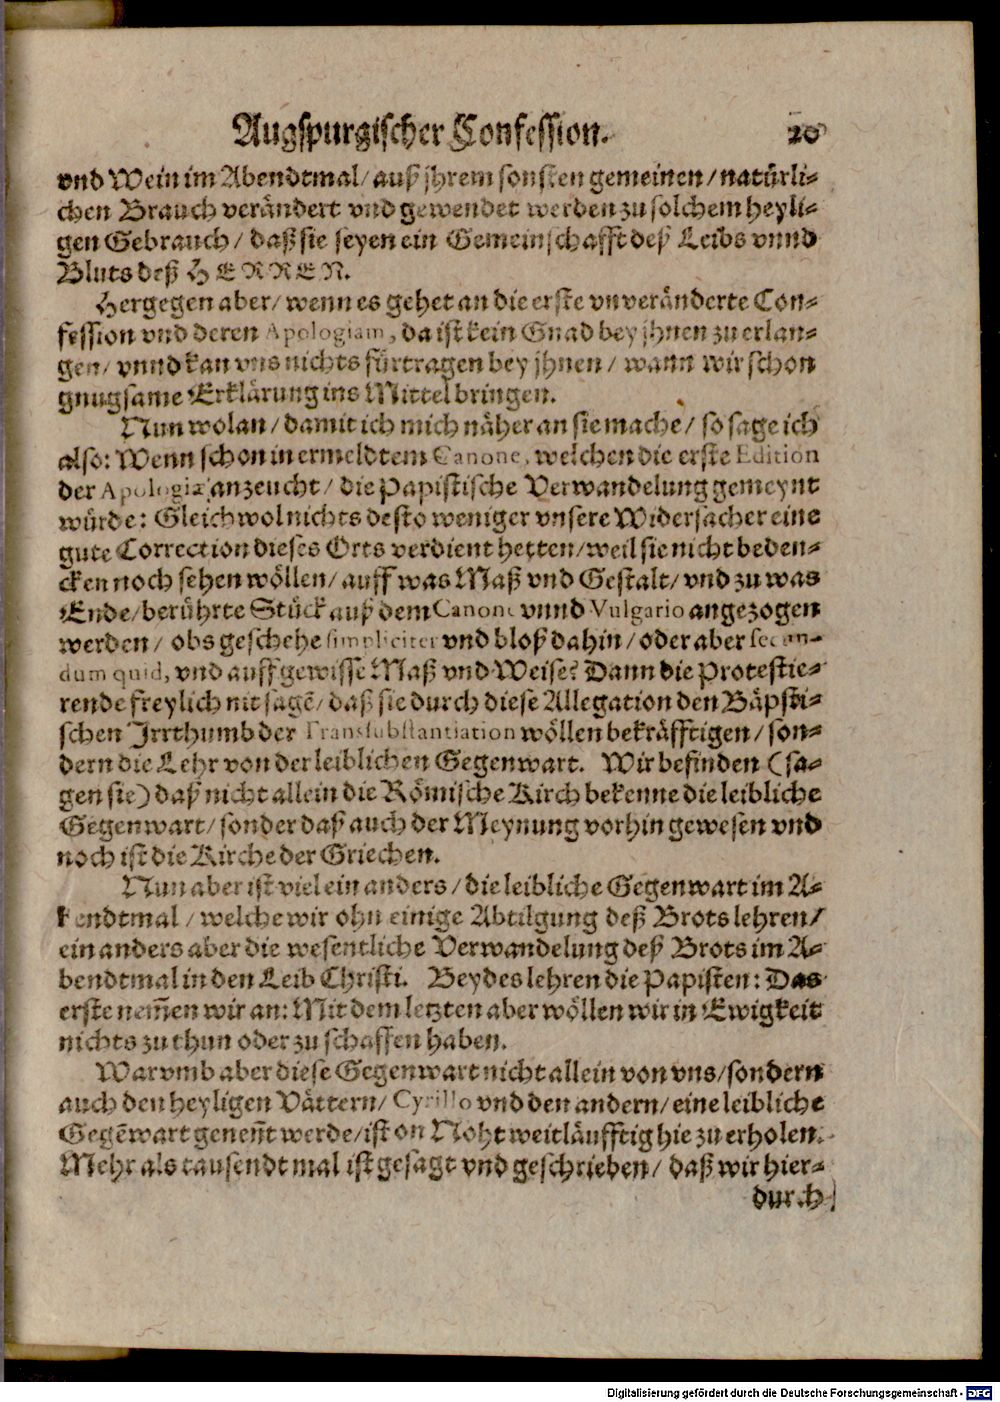 Augspurgischer Confession. 20
vnd Wein im Abendtmal/ auß jhrem sonsten gemeinen/ natürli-
chen Brauch verändert vnd gewendet werden zu solchem heyli-
gen Gebrauch/ daß sie seyen ein Gemeinschafft deß Leibs vnnd
Bluts deß HERREN.
Hergegen aber/ wenn es gehet an die erste vnveränderte Con-
fession vnd deren Apologiam, da ist kein Gnad bey jhnen zu erlan-
gen/ vnnd kan vns nichts fürtragen bey jhnen/ wann wir schon
gnugsame Erklärung ins Mittel bringen.
Nun wolan/ damit ich mich näher an sie mache/ so sage ich
also: Wenn schon in ermeldtem Canone, welchen die erste Edition
der Apologiæ anzeucht/ die Papistische Verwandelung gemeynt
würde: Gleichwol nichts desto weniger vnsere Widersacher eine
gute Correction dieses Orts verdient hetten/ weil sie nicht beden-
cken noch sehen wöllen/ auff was Maß vnd Gestalt/ vnd zu was
Ende/ berührte Stück auß dem Canone vnnd Vulgario angezogen
werden/ obs geschehe simpliciter vnd bloß dahin/ oder aber secun-
dum quid, vnd auff gewisse Maß vnd Weise? Dann die Protestie-
rende freylich nit sagē/ daß sie durch diese Allegation den Bäpsti-
schen Irrthumb der Transsubstantiation wöllen bekräfftigen/ son-
dern die Lehr von der leiblichen Gegenwart. Wir befinden (sa-
gen sie) daß nicht allein die Römische Kirch bekenne die leibliche
Gegenwart/ sonder daß auch der Meynung vorhin gewesen vnd
noch ist die Kirche der Griechen.
Nun aber ist viel ein anders/ die leibliche Gegenwart im A-
bendtmal/ welche wir ohn einige Abtilgung deß Brots lehren/
ein anders aber die wesentliche Verwandelung deß Brots im A-
bendtmal in den Leib Christi. Beydes lehren die Papisten: Das
erste nem̄en wir an: Mit dem letzten aber wöllen wir in Ewigkeit
nichts zu thun oder zu schaffen haben.
Warumb aber diese Gegenwart nicht allein von vns/ sondern
auch den heyligen Vättern/ Cyrillo vnd den andern/ eine leibliche
Gegēwart geneñt werde/ ist on Noht weitläufftig hie zu erholen.
Mehr als tausendt mal ist gesagt vnd geschrieben/ daß wir hier-
durch
Digitalisierung gefördert durch die Deutsche Forschungsgemeinschaft - DFG